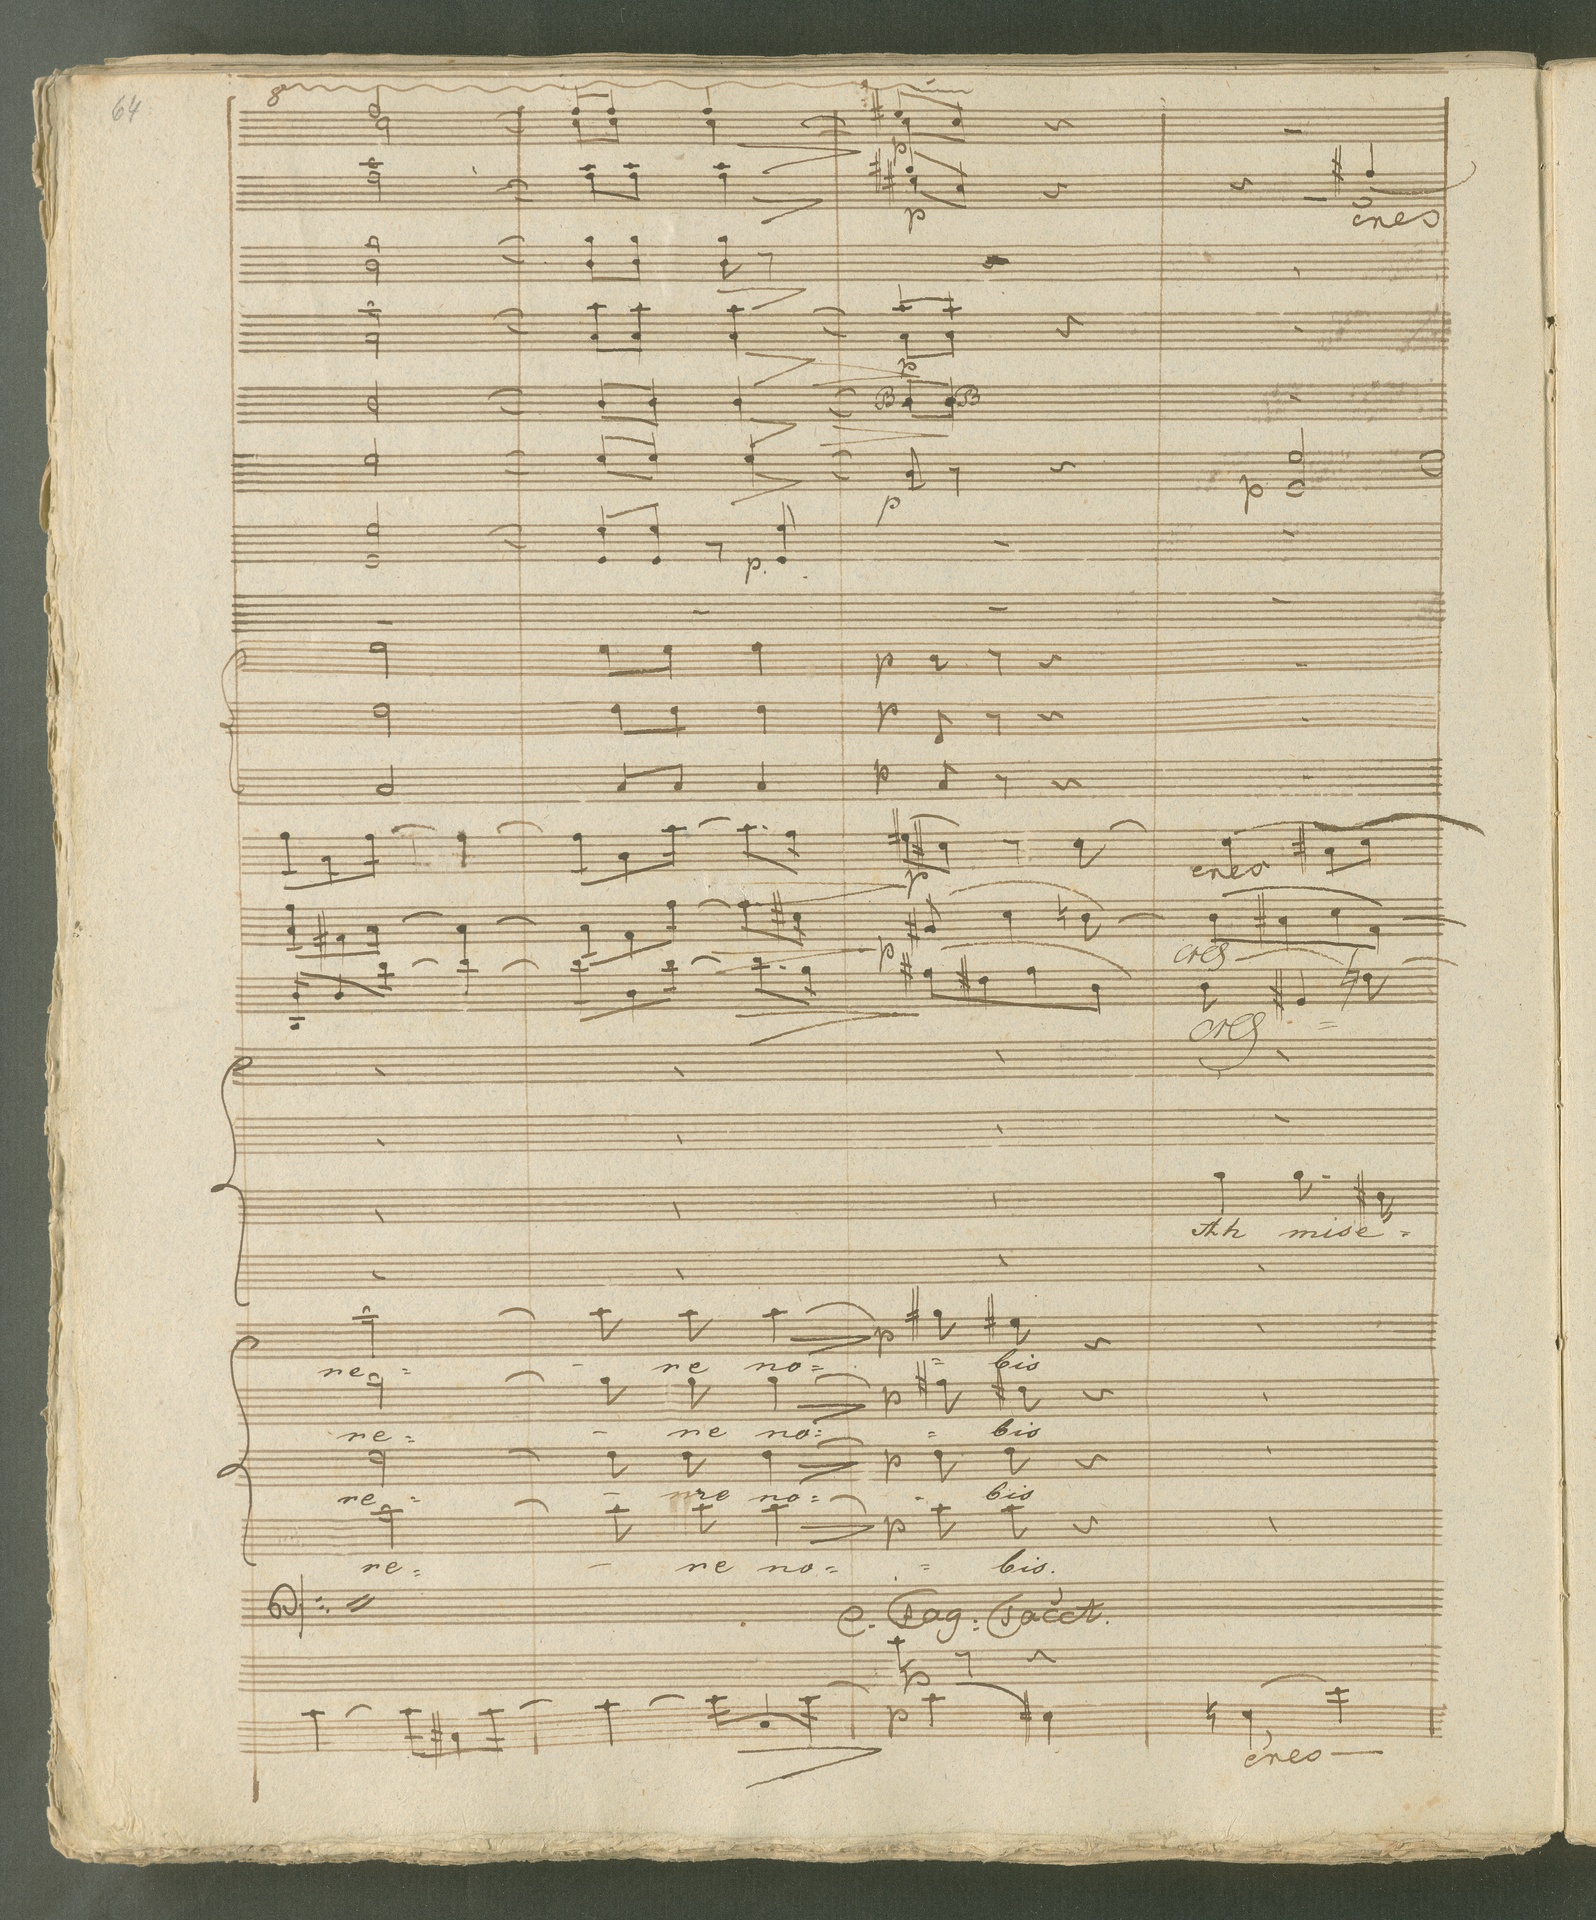 64
8
p
p
cres
p
B B
p
p
p.
p
p
p
cres
p
p
cres
cres
Ah mise =
p
re = - re no = = bis
p
re = - re no = = bis
p
re = - re no = - bis
p
re = - re no = = bis.
C. Fag: tacet.
p
p
cres